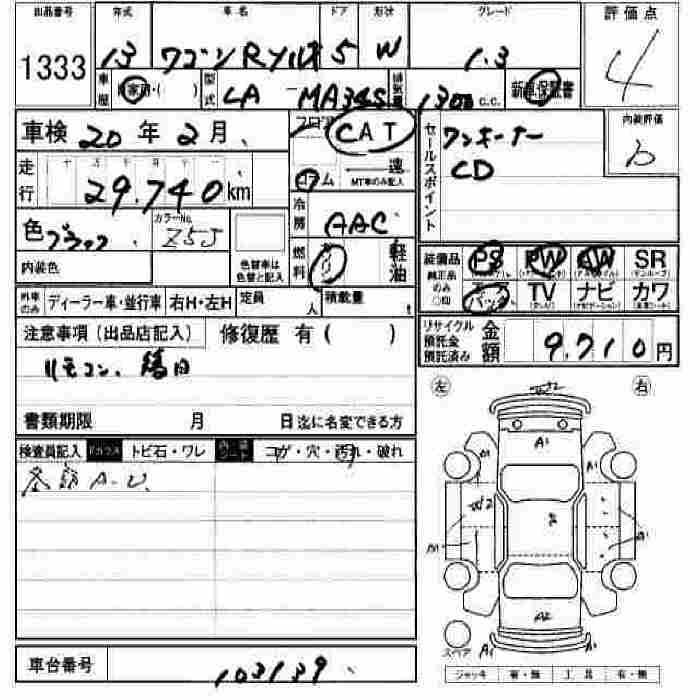 出品番号 年式 車名 ドア 形状 グレード 評価点
1333 13 ワゴンR 5 W 1.3 4
車歴 自家用・( ) 型式 LA-MA34S 排気量 1300 c.c. 新車・保証書
車検 20 年 2 月 シフト CAT セールスポイント ワンオーナー 内装評価
コラム 速 CD
走行 29.740 km MT車のみ記入
色 ブラック カラーNo. Z5J 冷房 AAC
内装色 色替車は色替と記入 燃料 軽油 装備品 PS PW AW SR
純正品のみ○印 エアバック TV ナビ カワ
外車のみ ディーラー車・並行車 右H・左H 定員 人 積載量 t
注意事項(出品店記入) 修復歴 有( ) リサイクル預託金預託済み 金額 9.710円
リモコン、後日
書類期限 月 日迄に名変できる方
左 右
検査員記入 Fガラス トビ石・ワレ コゲ・穴・汚れ・破れ
A1
A1
A1
A2
A1
スペア
車台番号 103139
ジャッキ 有・無 工具 有・無